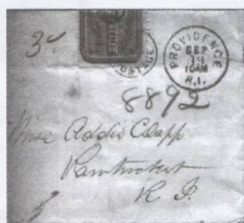 3c
POSTAGE
PROVIDENCE
SEP
19
10AM
R.I.
8892
Miss Addie Clapp
Pawtucket
R I.